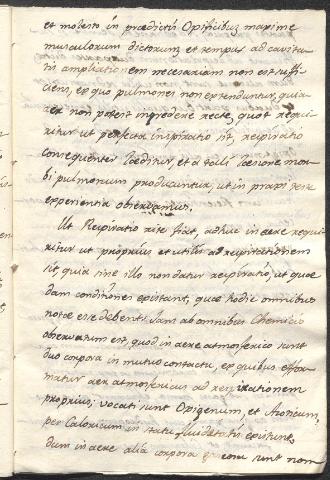 et molesto in prædictis Opificibus maxime
musculorum dictorum, et tempus ad cavita-
tis ampliationem necessariam non est suffi-
ciens, ex quo pulmones non extenduntur, quia
aer non potest ingredere recte, quot requi-
ritur ut perfecta inspiratio sit, respiratio
consequenter læditur, et a tali læsione mor-
bi pulmonum producuntur, ut in praxi
experientia observamus.
Ut Respiratio rite fiat, adhuc in aere requi-
ritur ut proprius et utilis ad respirationem
sit, quia sine illo non datur respiratio, ut quæ-
dam conditiones existant, quæ hodie omnibus
notæ esse debent. Jam ab omnibus Chemicis
observatum est, quod in aere atmosferico sunt
duo corpora in mutuo contactu, ex quibus effor-
matur aer atmosfericus ad respirationem
proprius; vocati sunt Oxigenum, et Azoticum,
per Caloricum in statu fluiditatis existunt,
dum in aere alia corpora sunt nom